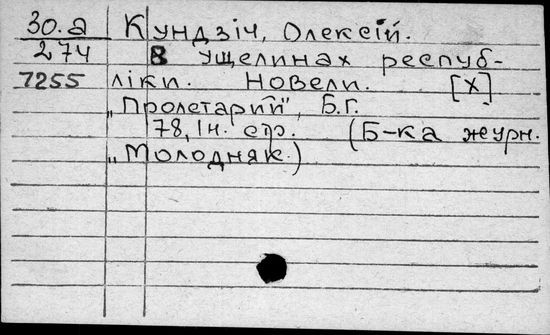 30.а Кундзіч, Олексій.
274 В ущелинах респуб-
7255 ліки. Новели. [Х]
„Пролетарий", Б.Г.
78, Ін. стр. (Б-ка журн.
„Молодняк.)